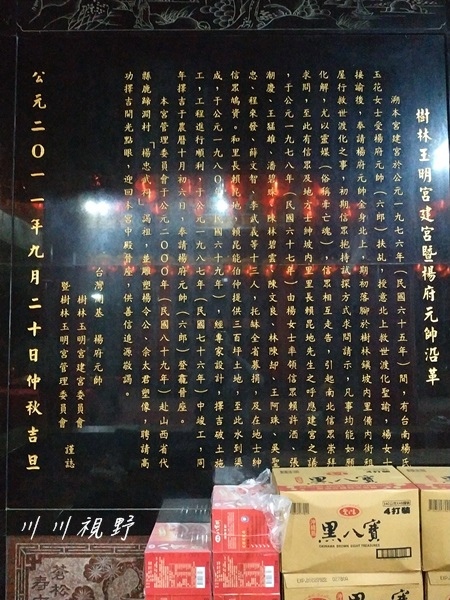 樹林玉明宮建宮暨楊府元帥沿革
溯本宮建宮於公元一九七六年(民國六十五年)間,有台南楊氏
玉花女士受楊府元帥(六郎)扶乩,授意北上救世渡化聖諭,楊女士
接諭後,奉請楊府元帥金身北上,期初落腳於樹林鎮坡內里備內街祖
屋行救世渡化之事,初期信眾抱持試探方式求問請示,凡事均能如願
化解,尤以靈媒(俗稱牽亡魂),信眾相互走告,引起南北信眾崇拜
求問,至此有信眾及地方士紳坡內里里長賴昆地先生之呼應建宮之議
,于公元一九七八年(民國六十七年)由楊女士率領信眾賴許酒、張
潮慶、王猛雄、潘碧
陳林碧雲、陳文良、林陳却、王阿珠、吳聖
忠、程來發、薛文智、李武義等十三人,托缽全省募捐,及在地士紳
信眾鳩資。和里長賴昆地、賴昆能伯仲提供三百坪土地,至此水到渠
成,于公元一九八〇年(民國六十九年),經專家設計,擇吉破土施
工,工程進行順利,于公元一九八七年(民國七十六年)中竣工,同
年擇吉于農曆十月初六日,奉請楊府元帥(六郎)登龕晉座。
本宮管理委員會于公元二〇〇〇年(民國八十九年)赴山西省代
縣鹿蹄澗村「楊忠武祠」謁祖,並雕塑楊令公、佘太君塑像,聘請高
功擇吉開光點眼,迎回本宮中殿晉座,供善信追源敬謁。
台灣開基 楊府元帥
樹林玉明宮建宮委員會
暨樹林玉明宮管理委員會 謹誌
公元二〇一一年九月二十日仲秋吉旦
川川視野
黑八寶
4打裝